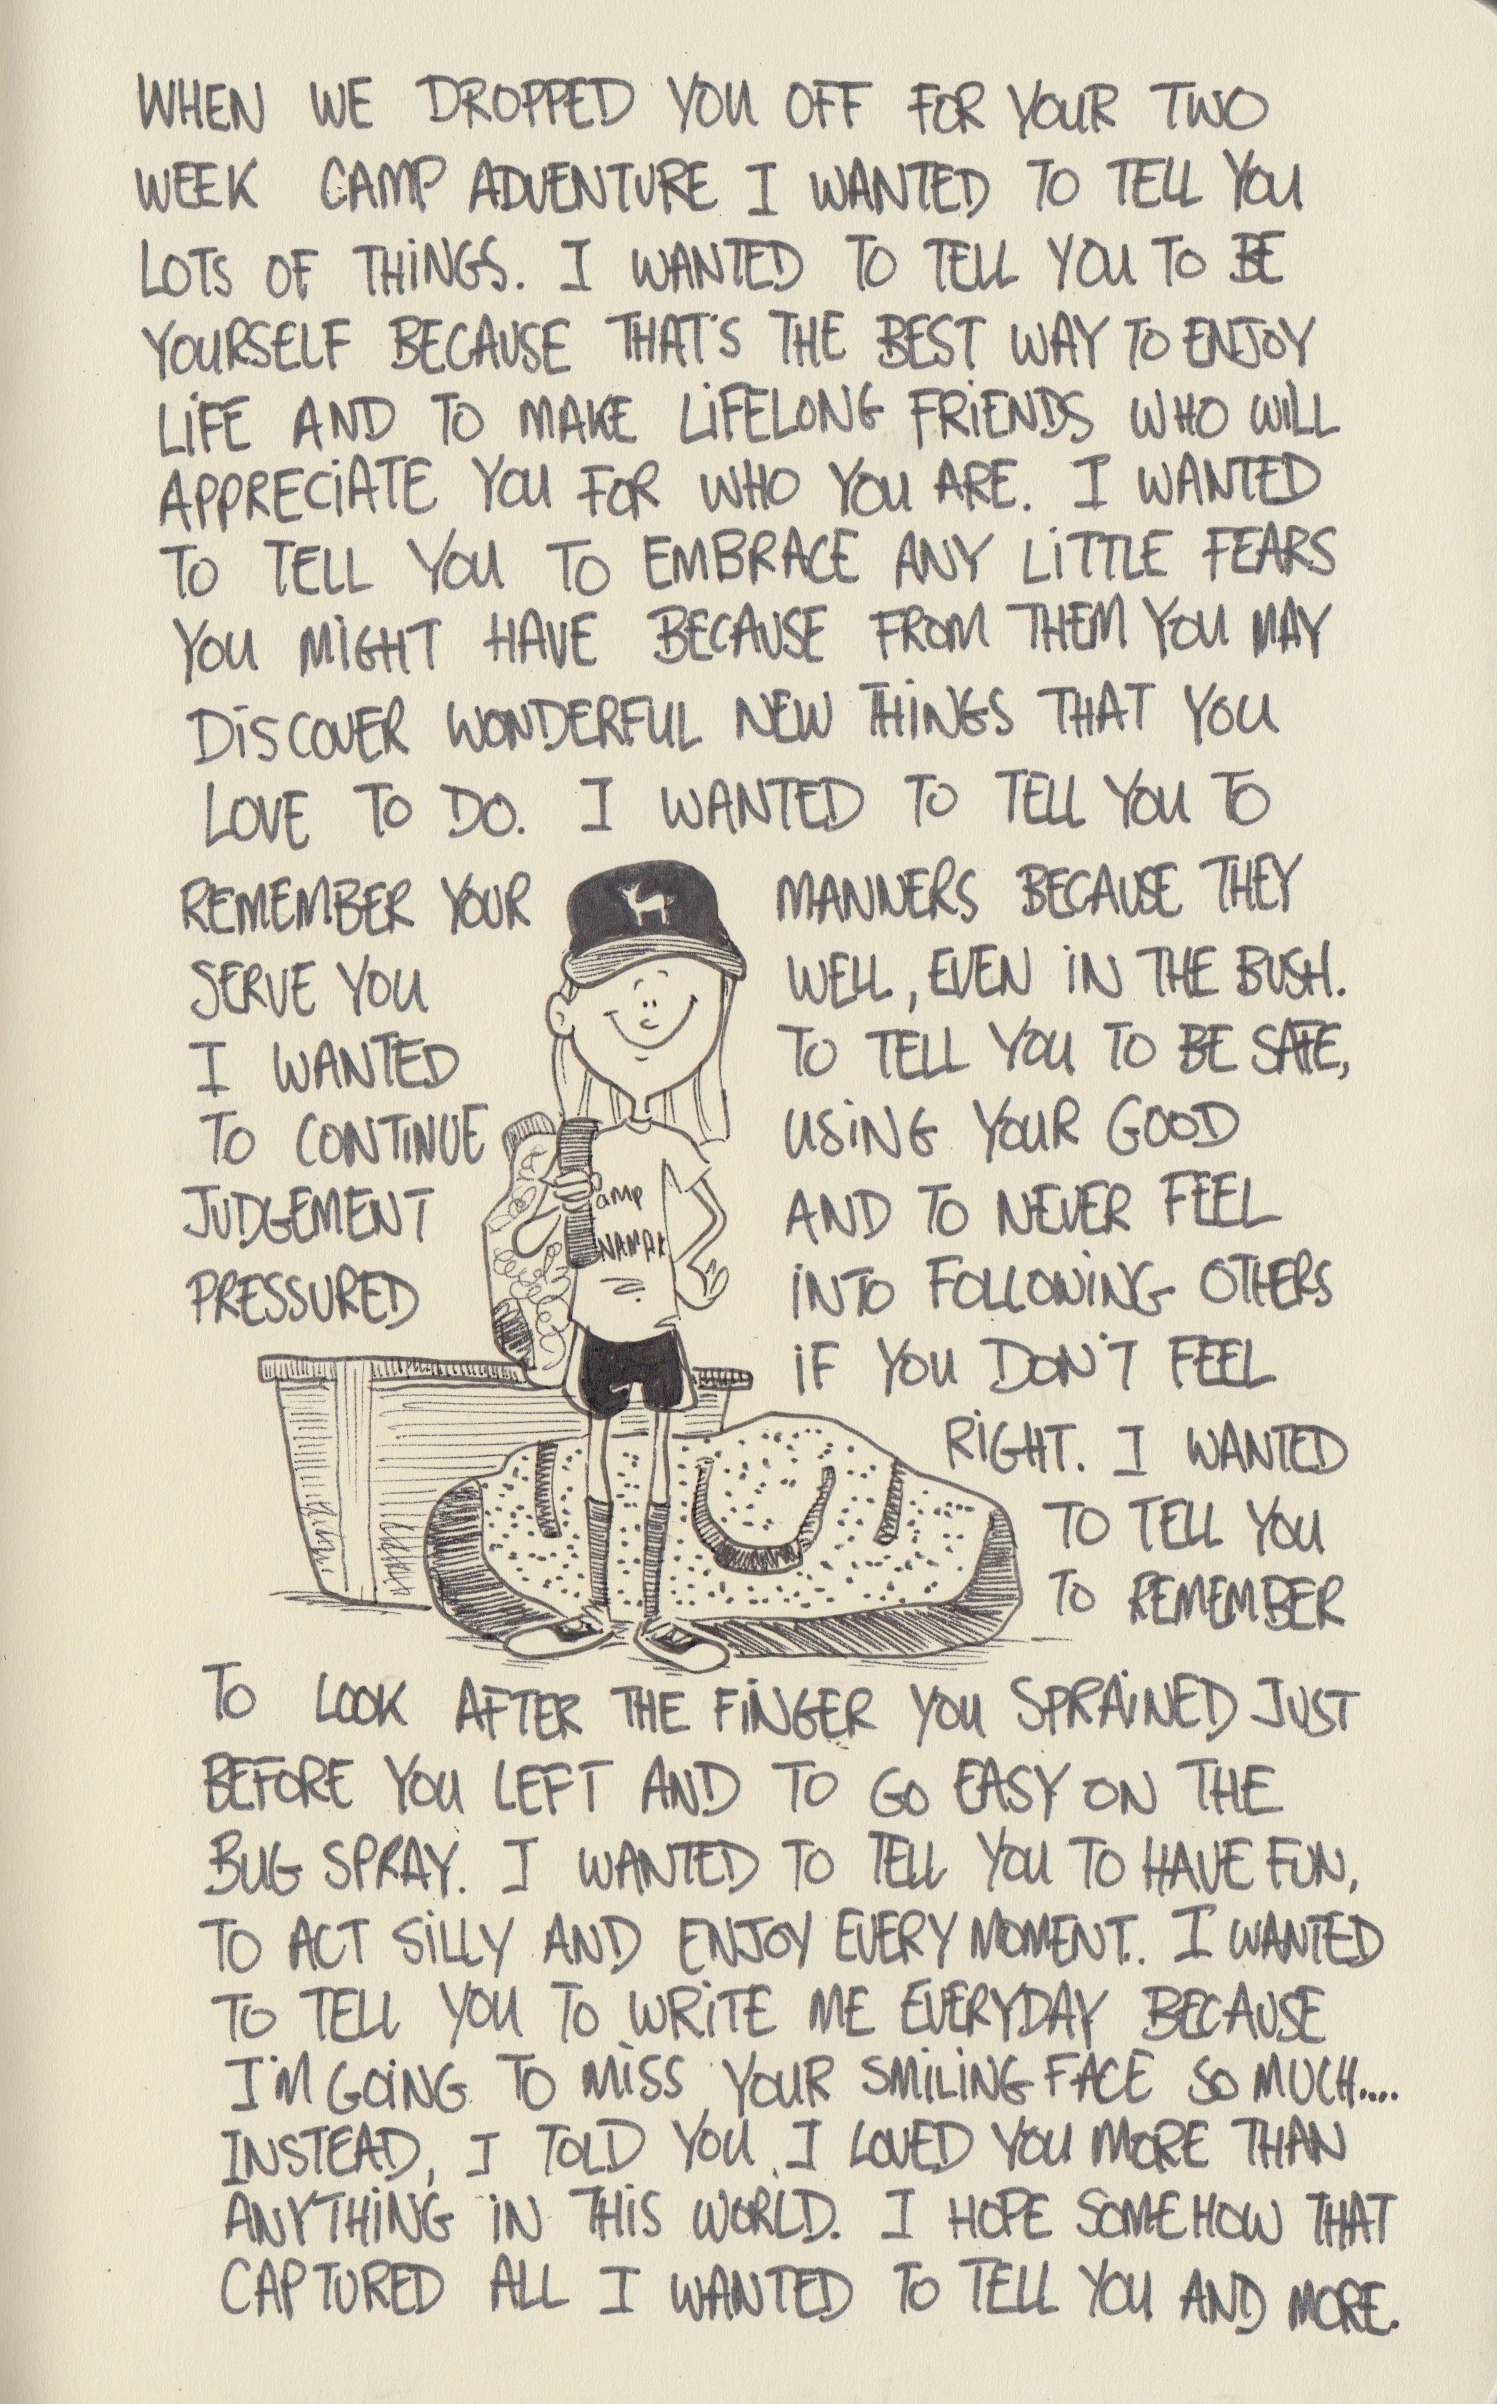 WHEN WE DROPPED YOU OFF FOR YOUR TWO
WEEK CAMP ADVENTURE I WANTED TO TELL YOU
LOTS OF THINGS. I WANTED TO TELL YOU TO BE
YOURSELF BECAUSE THAT'S THE BEST WAY TO ENJOY
LIFE AND TO MAKE LIFELONG FRIENDS WHO WILL
APPRECIATE YOU FOR WHO YOU ARE. I WANTED
TO TELL YOU TO EMBRACE ANY LITTLE FEARS
YOU MIGHT HAVE BECAUSE FROM THEM YOU MAY
DISCOVER WONDERFUL NEW THINGS THAT YOU
LOVE TO DO. I WANTED TO TELL YOU TO
REMEMBER YOUR MANNERS BECAUSE THEY
SERVE YOU WELL, EVEN IN THE BUSH.
I WANTED TO TELL YOU TO BE SAFE,
TO CONTINUE USING YOUR GOOD
JUDGEMENT AND TO NEVER FEEL
PRESSURED INTO FOLLOWING OTHERS
IF YOU DON'T FEEL
RIGHT. I WANTED
TO TELL YOU
TO REMEMBER
TO LOOK AFTER THE FINGER YOU SPRAINED JUST
BEFORE YOU LEFT AND TO GO EASY ON THE
BUG SPRAY. I WANTED TO TELL YOU TO HAVE FUN,
TO ACT SILLY AND ENJOY EVERY MOMENT. I WANTED
TO TELL YOU TO WRITE ME EVERYDAY BECAUSE
I'M GOING TO MISS YOUR SMILING FACE SO MUCH....
INSTEAD, I TOLD YOU I LOVED YOU MORE THAN
ANYTHING IN THIS WORLD. I HOPE SOMEHOW THAT
CAPTURED ALL I WANTED TO TELL YOU AND MORE.
amp